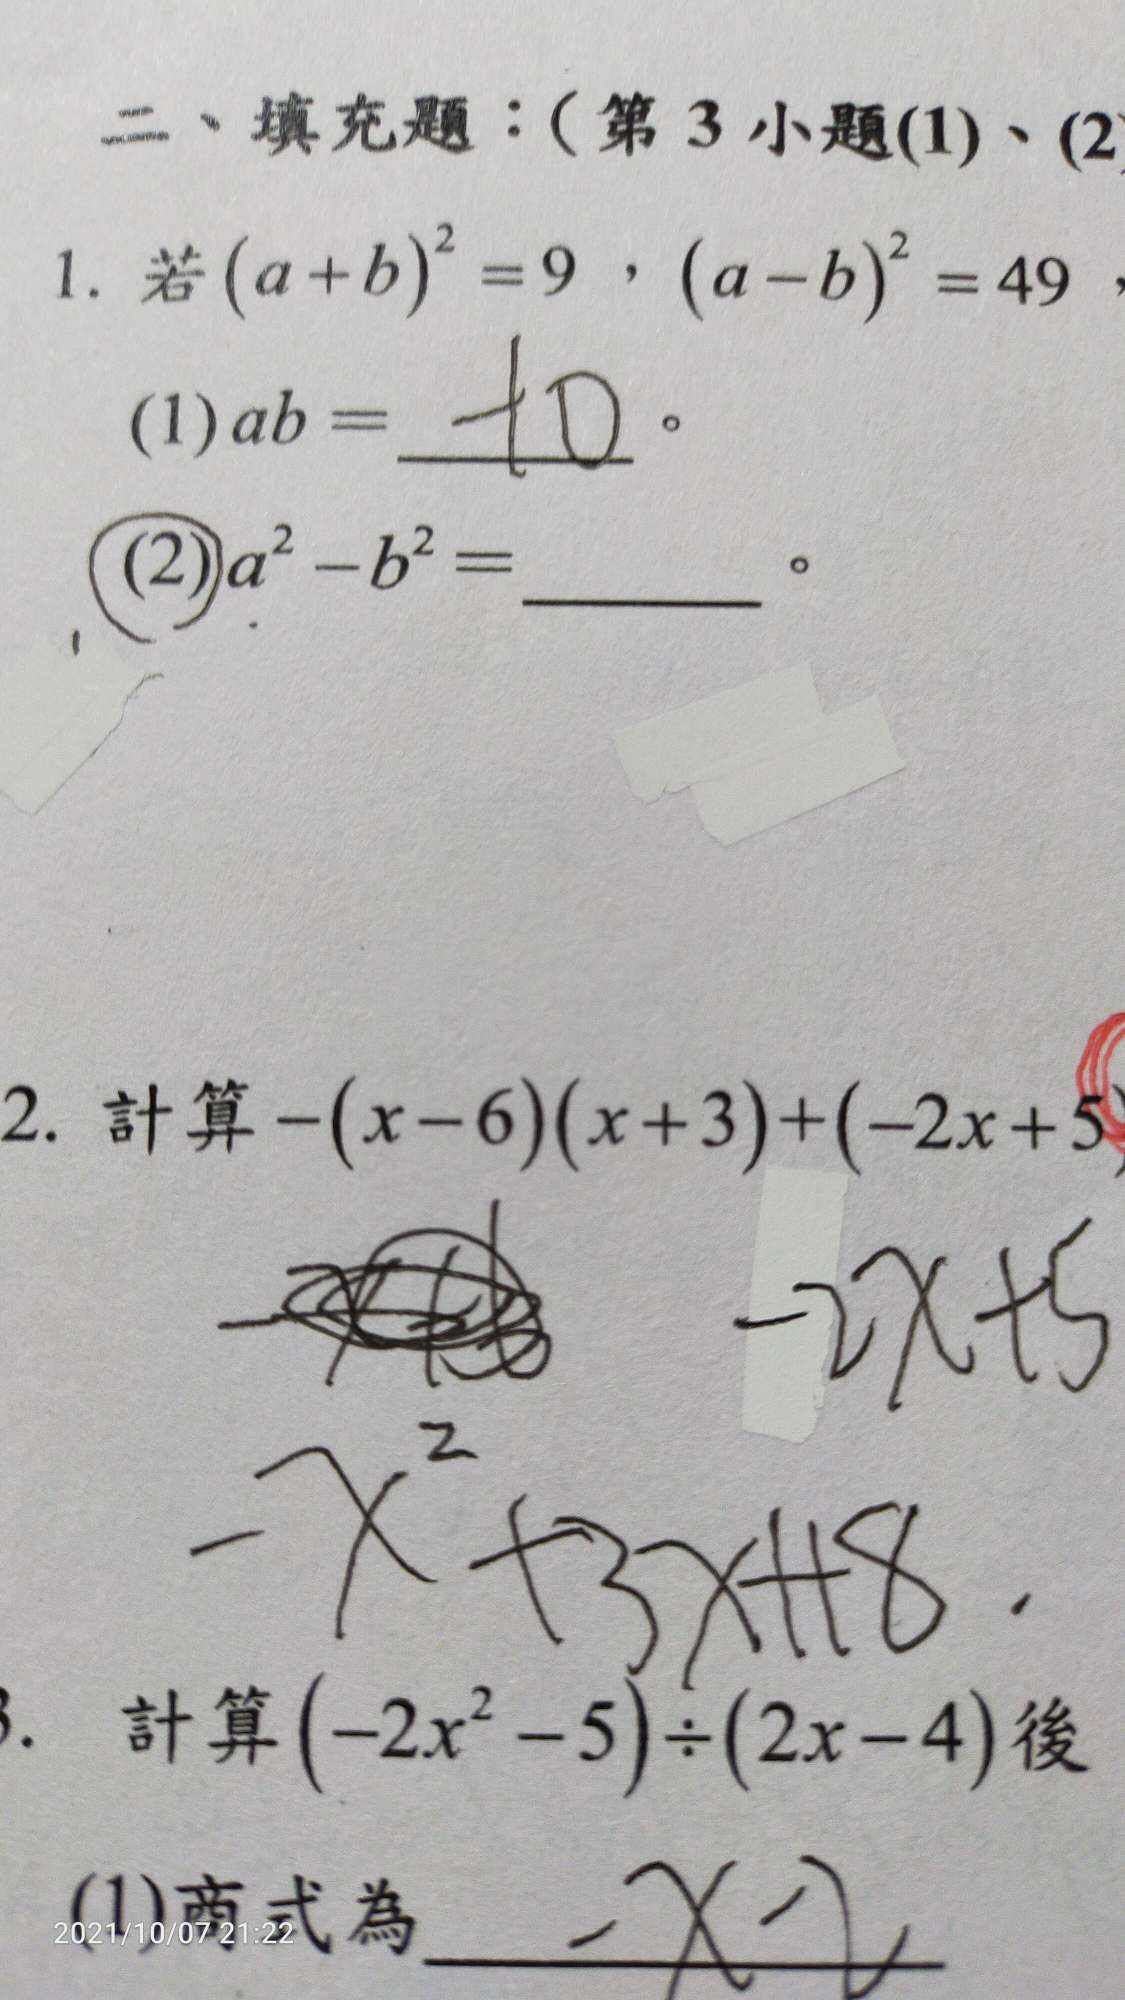 二、填充題：(第 3 小題(1)、(2)
1. 若(a+b)²=9，(a−b)²=49，
(1)ab=-10。
(2)a²−b²=______。
2. 計算−(x−6)(x+3)+(−2x+5)
-2x+5
-x²+3x+18
3. 計算(−2x²−5)÷(2x−4)後
(1)商式為 -x-2
2021/10/07 21:22